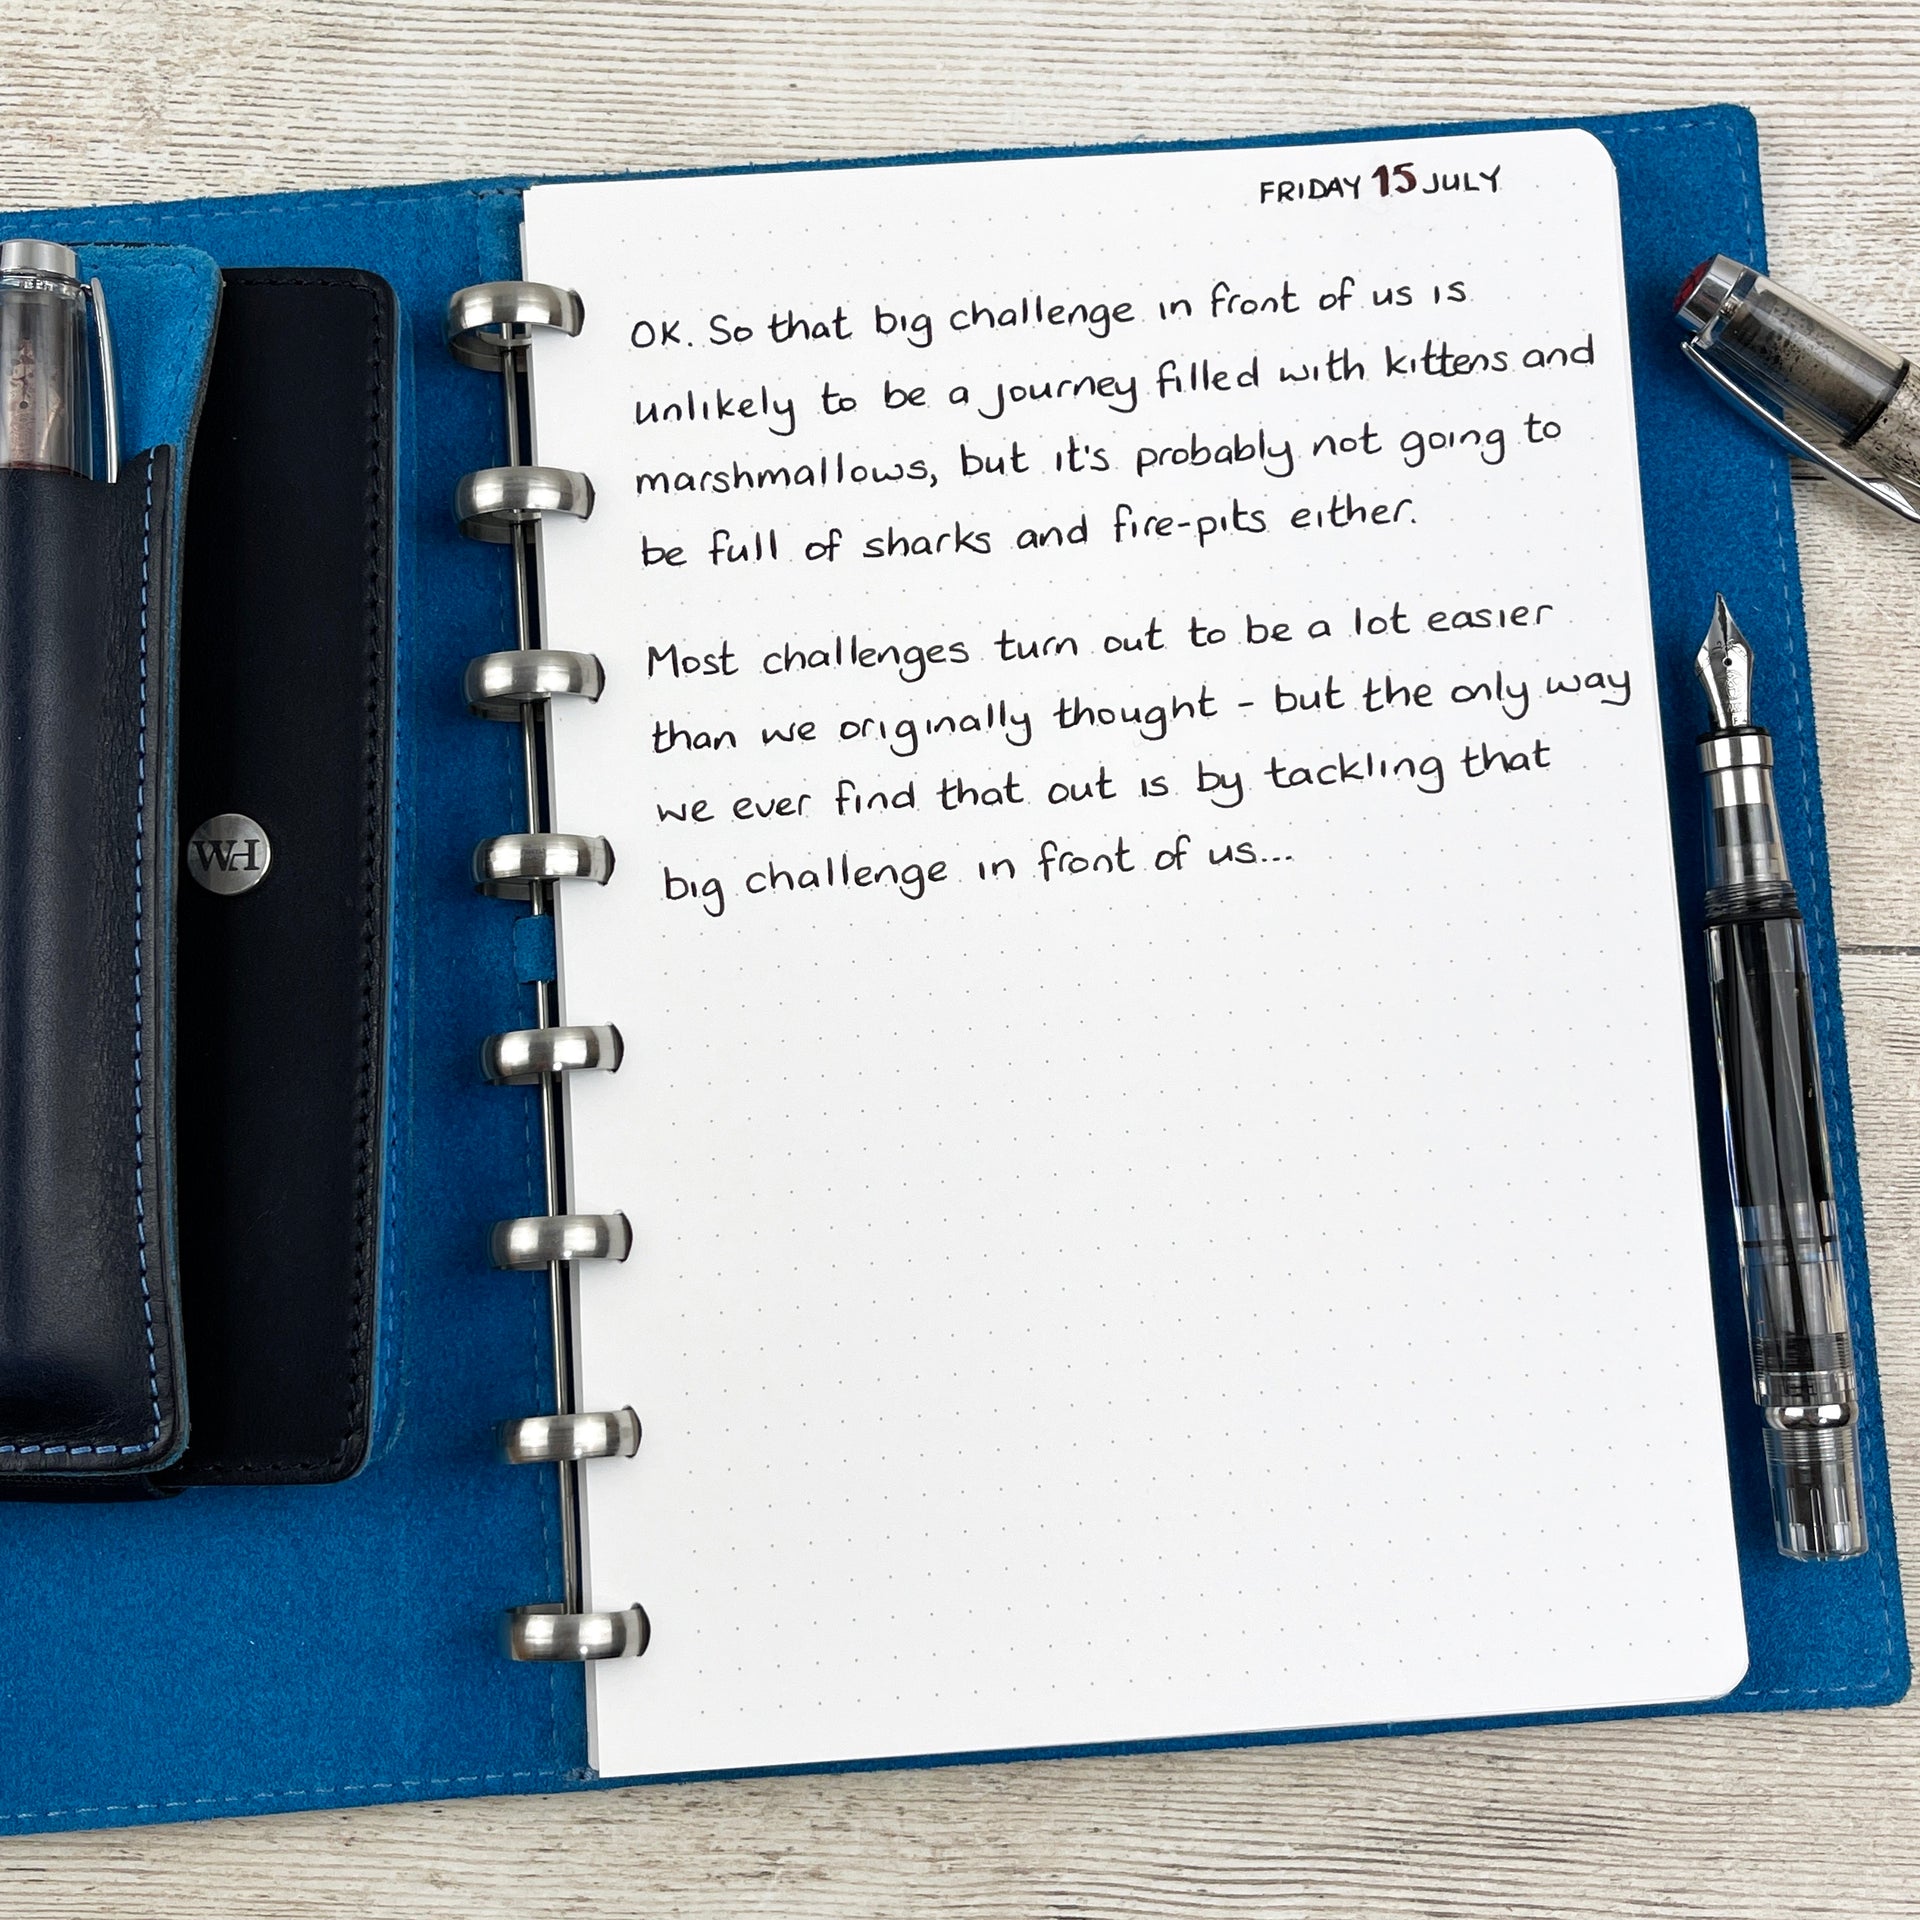 FRIDAY 15 JULY
OK. So that big challenge in front of us is
unlikely to be a journey filled with kittens and
marshmallows, but it's probably not going to
be full of sharks and fire-pits either.
Most challenges turn out to be a lot easier
than we originally thought - but the only way
we ever find that out is by tackling that
big challenge in front of us...
WH